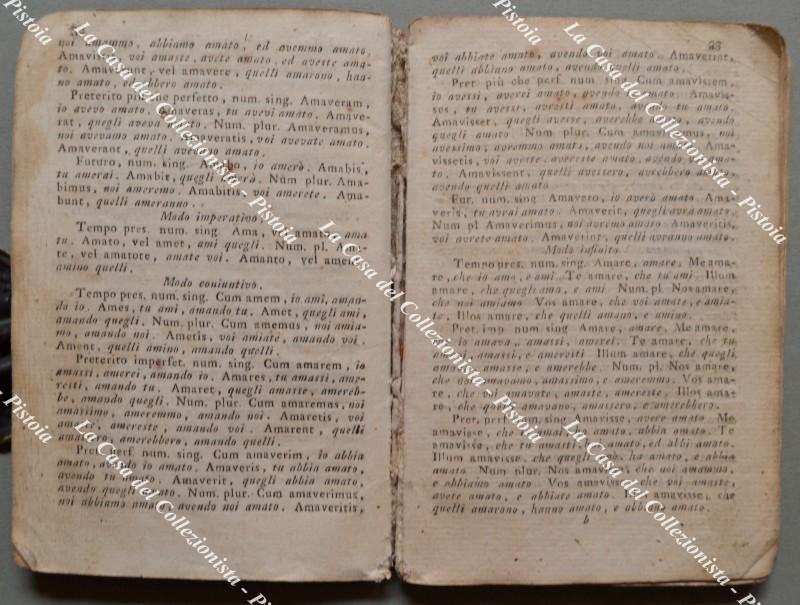 noi amammo, abbiamo amato, ed avemmo amato,
Amavistis, voi amaste, avete amato, ed aveste ama-
to. Amaverunt, vel amavere, quelli amarono, han-
no amato, ed ebbero amato.
Preterito più che perfetto, num. sing. Amaveram,
io avevo amato. Amaveras, tu avevi amato. Amave-
rat, quegli aveva amato. Num. plur. Amaveramus,
noi avevamo amato. Amaveratis, voi avevate amato.
Amaverant, quelli avevano amato.
Futuro, num. sing. Amabo, io amerò. Amabis,
tu amerai. Amabit, quegli amerà. Num plur. Ama-
bimus, noi ameremo. Amabitis, voi amerete. Ama-
bunt, quelli ameranno.
Modo imperativo.
Tempo pres. num. sing. Ama, vel amato, ama
tu. Amato, vel amet, ami quegli. Num. pl. Ama-
te, vel amatote, amate voi. Amanto, vel ament,
amino quelli.
Modo coniuntivo.
Tempo pres. num. sing. Cum amem, io ami, aman-
do io. Ames, tu ami, amando tu. Amet, quegli ami,
amando quegli. Num. plur. Cum amemus, noi amia-
mo, amando noi. Ametis, voi amiate, amando voi.
Ament, quelli amino, amando quelli.
Preterito imperfet. num. sing. Cum amarem, io
amassi, amerei, amando io. Amares, tu amassi, ame-
resti, amando tu. Amaret, quegli amasse, amereb-
be, amando quegli. Num. plur. Cum amaremus, noi
amassimo, ameremmo, amando noi. Amaretis, voi
amaste, amereste, amando voi. Amarent, quelli
amassero, amerebbero, amando quelli.
Pret. perf. num. sing. Cum amaverim, io abbia
amato, avendo io amato. Amaveris, tu abbia amato,
avendo tu amato. Amaverit, quegli abbia amato,
avendo quegli amato. Num. plur. Cum amaverimus,
noi abbiamo amato, avendo noi amato. Amaveritis,
33
voi abbiate amato, avendo voi amato. Amaverint,
quelli abbiano amato, avendo quelli amato.
Pret. più che perf. num. sing. Cum amavissem,
io avessi, averei amato, avendo io amato. Amavis-
ses, tu avessi, avresti amato, avendo tu amato.
Amavisset, quegli avesse, averebbe amato, avendo
quegli amato. Num plur. Cum amavissemus, noi
avessimo, avremmo amato, avendo noi amato. Ama-
vissetis, voi aveste, avereste amato, avendo voi amato.
Amavissent, quelli avessero, avrebbero amato,
avendo quelli amato.
Fut. num. sing. Amavero, io averò amato. Ama-
veris, tu avrai amato. Amaverit, quegli avrà amato.
Num pl Amaverimus, noi avremo amato. Amaveritis,
voi avrete amato. Amaverint, quelli avranno amato.
Modo infinito.
Tempo pres. num. sing. Amare, amare. Me ama-
re, che io amo, e ami. Te amare, che tu ami. Illum
amare, che quegli ama, e ami. Num. pl. Nos amare,
che noi amiamo. Vos amare, che voi amate, e amia-
te. Illos amare, che quelli amano, e amino.
Pret. imp num sing. Amare, amare. Me amare,
che io amava, amassi, amerei. Te amare, che tu
amavi, amassi, e ameresti Illum amare, che quegli
amava, amasse, e amerebbe. Num. pl. Nos amare,
che noi amavamo, amassimo, e ameremmo. Vos ama-
re, che voi amavate, amaste, e amereste. Illos ama-
re, che quelli amavano, amassero, e amerebbero.
Pret. perf. num. sing. Amavisse, avere amato. Me
amavisse, che io amai, ho amato, abbia amato. Te
amavisse, che tu amasti, hai amato, ed abbi amato.
Illum amavisse. che quegli amò, ha amato, e abbia
amato. Num plur. Nos amavisse, che noi amammo,
e abbiamo amato. Vos amavisse, che voi amaste,
avete amato, e abbiate amato. Illos amavisse, che
quelli amarono, hanno amato, e abbiano amato.
b
La Casa del Collezionista - Pistoia